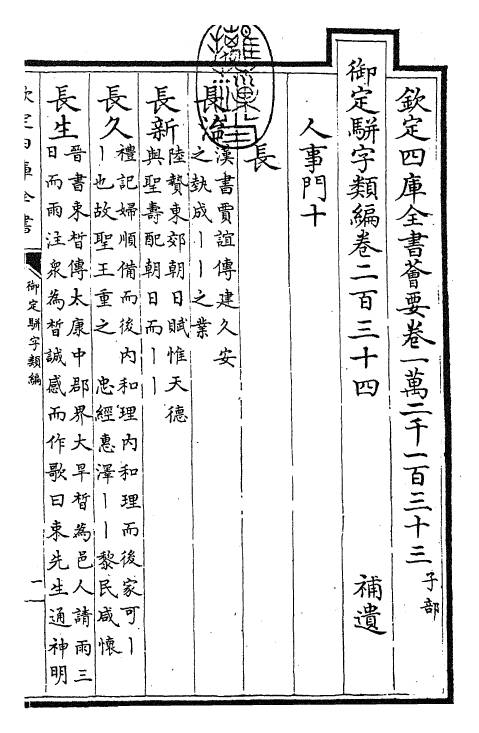 欽定四庫全書薈要卷一萬二千一百三十三 子部
御定駢字類編卷二百三十四 補遺
人事門十
長
長治 漢書賈誼傳建久安
之埶成丨丨之業
長新 陸贄東郊朝日賦惟天德
與聖壽配朝日而丨丨
長久 禮記婦順備而後内和理内和理而後家可丨
丨也故聖王重之 忠經惠澤丨丨黎民咸懷
長生 晉書束晳傳太康中郡界大旱晳為邑人請雨三
日而雨注衆為晳誠感而作歌曰束先生通神明
欽定四庫全書
御定駢字類編
一